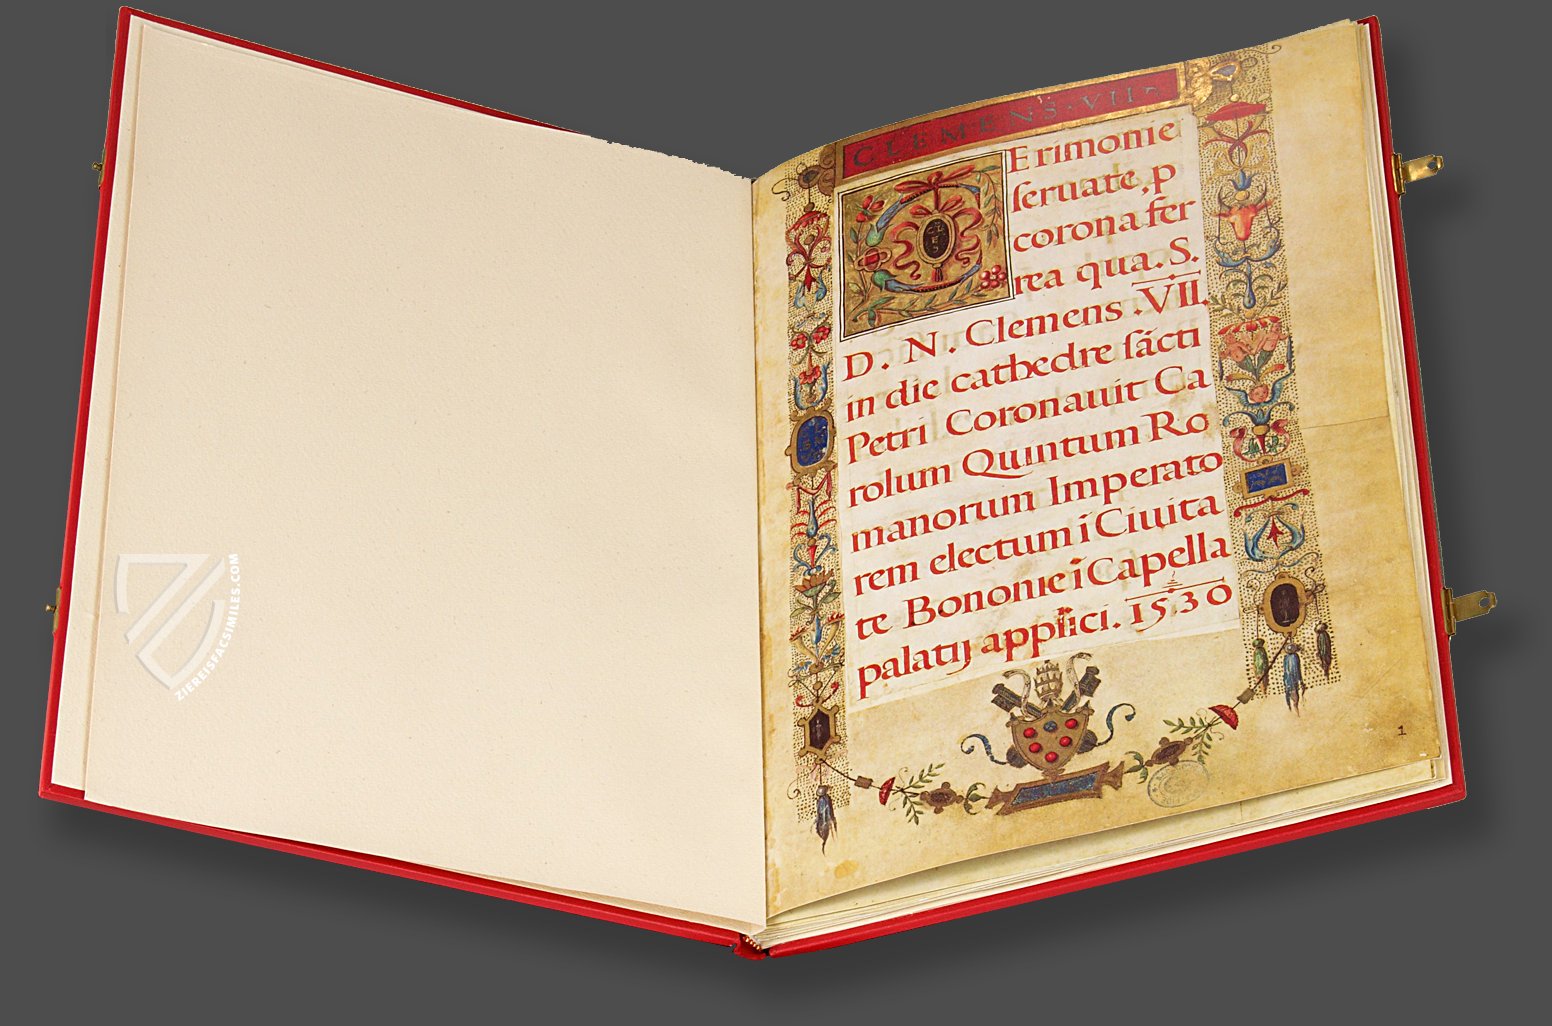 CLEMENS·VII
CErimonie
seruate, p
corona fer
rea qua. S.
D. N. Clemens .VII.
in die cathedre sācti
Petri Coronauit Ca
rolum Quintum Ro
manorum Imperato
rem electum ī Ciuita
te Bononie ī Capella
palatij applici. 1530
1
ZIEREISFACSIMILES.COM